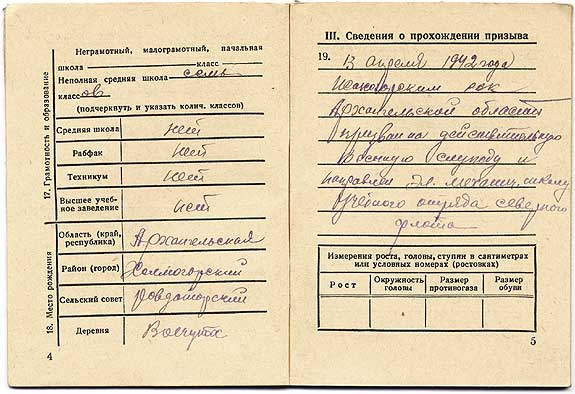 Неграмотный, малограмотный, начальная
школа класс
Неполная средняя школа семь
классов
(подчеркнуть и указать колич. классов)
17. Грамотность и образование
Средняя школа нет
Рабфак нет
Техникум нет
Высшее учеб-
ное заведение нет
18. Место рождения
Область (край,
республика) Архангельская
Район (город) Холмогорский
Сельский совет Ровдогорский
Деревня
4
III. Сведения о прохождении призыва
19. 13 апреля 1942 года
рвк
Архангельской области
призван на действительную
военную службу и
направлен Эл. механич. школу
Учебного отряда северного
флота
Измерения роста, головы, ступни в сантиметрах
или условных номерах (ростовках)
Рост Окружность головы Размер противогаза Размер обуви
5